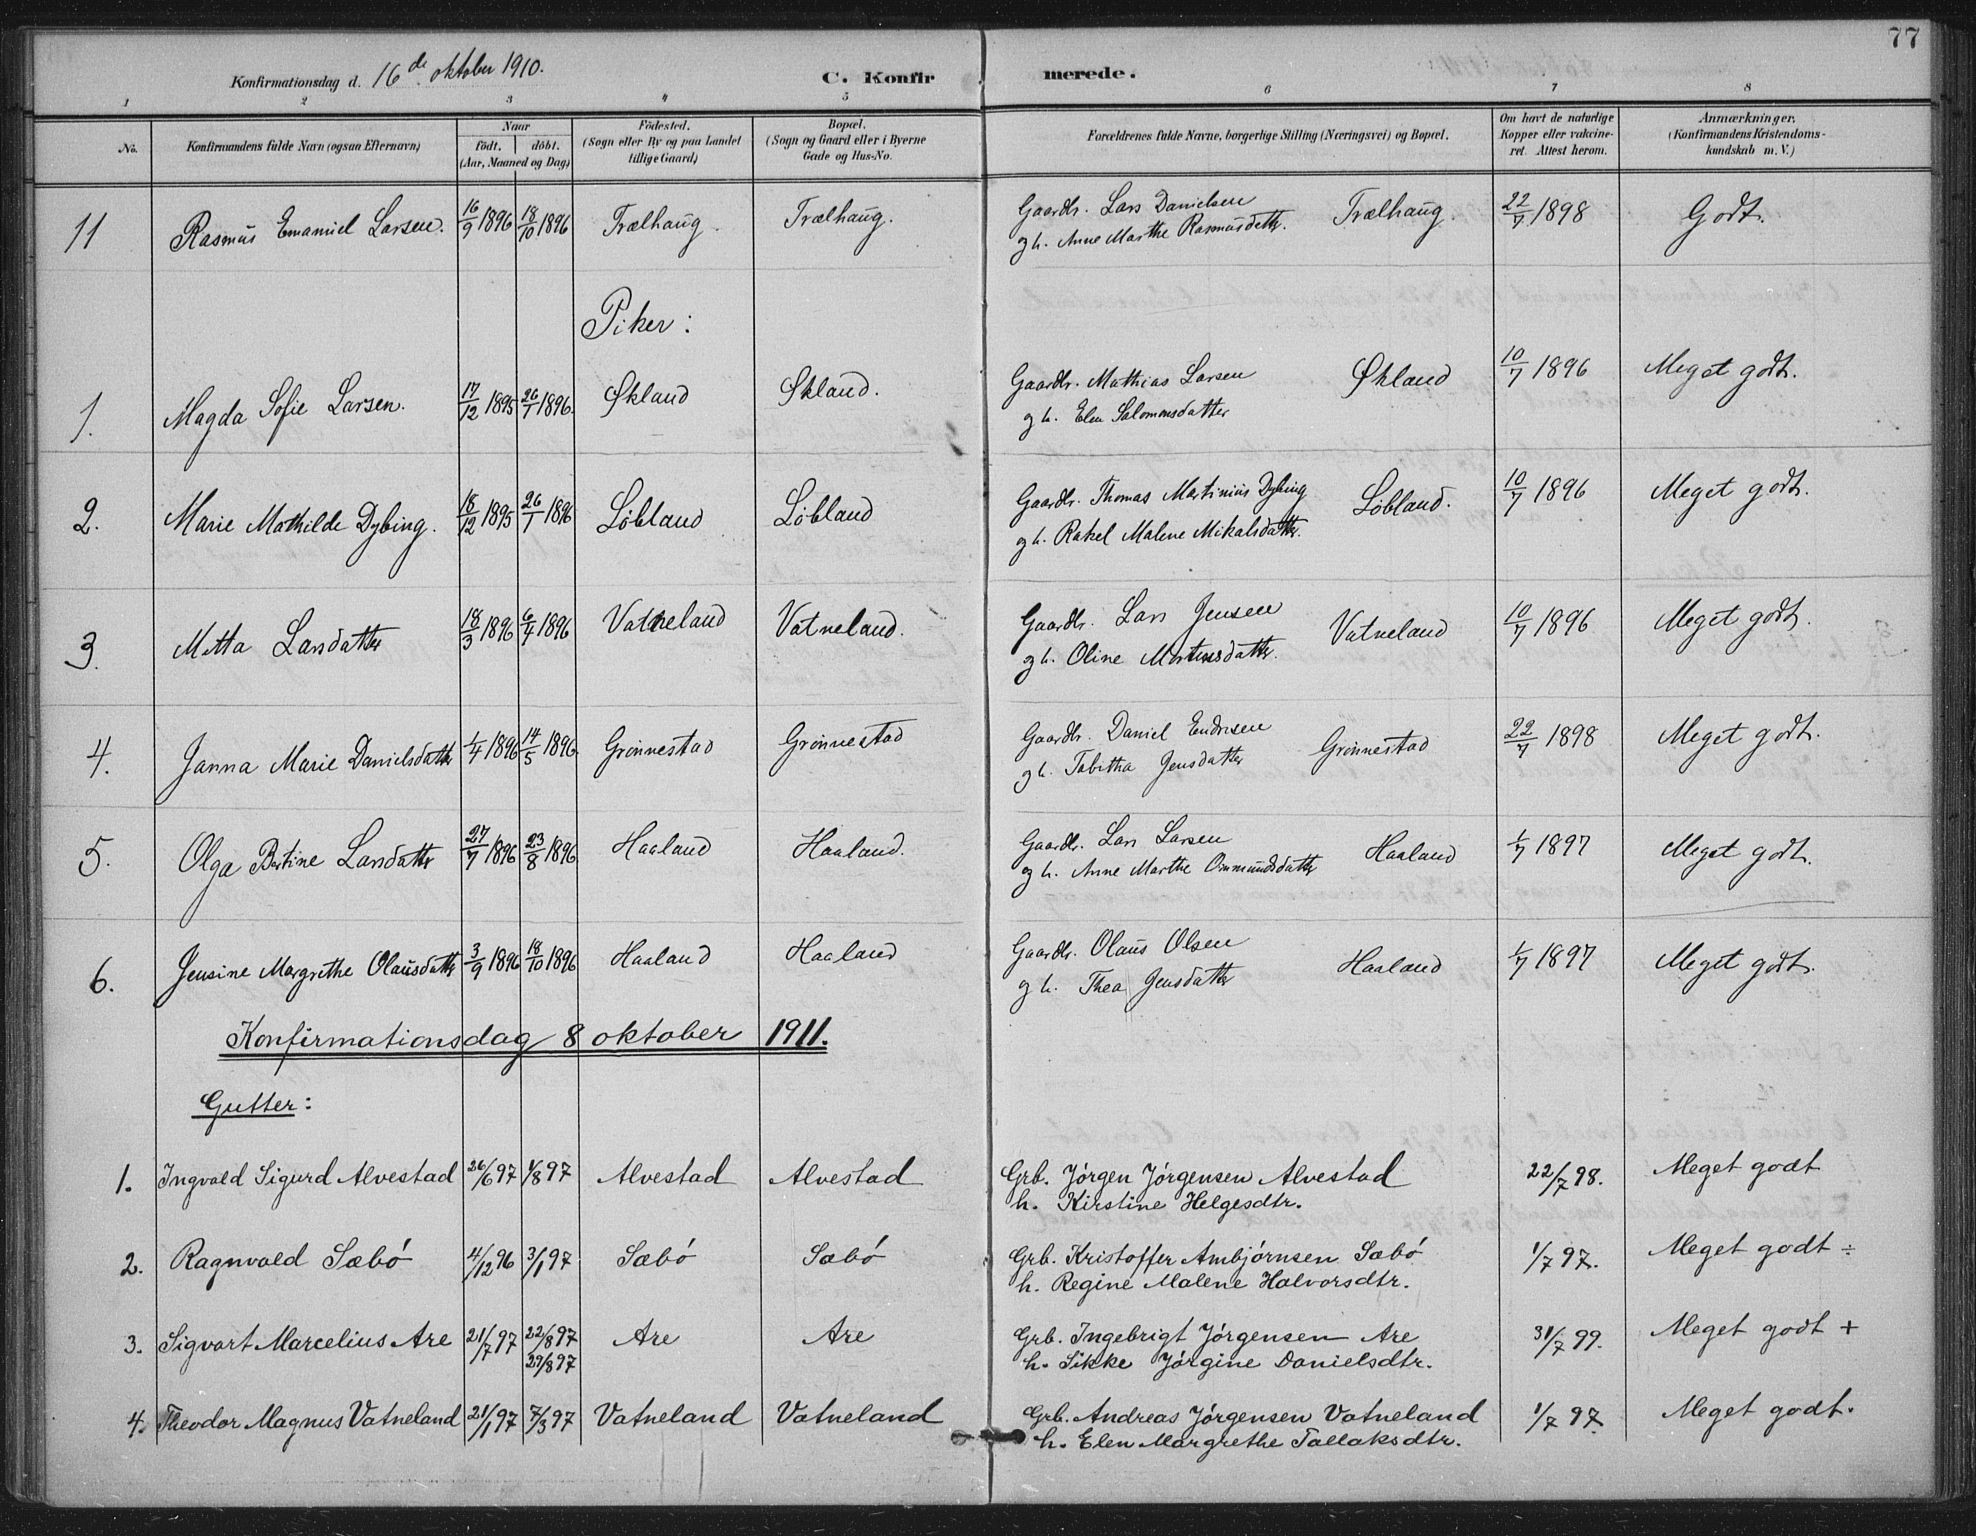 77
Konfirmationsdag d. 16de oktober 1910. C. Konfirmerede.
1 2 3 4 5 6 7 8
No. Konfirmandens fulde Navn (ogsaa Efternavn) Naar födt. döbt. (Aar, Maaned og Dag) Födested. (Sogn eller By og paa Landet tillige Gaard) Bopæl. (Sogn og Gaard eller i Byerne Gade og Hus-No. Forældrenes fulde Navne, borgerlige Stilling (Næringsvei) og Bopæl. Om havt de naturlige Kopper eller vakcineret. Attest herom. Anmærkninger. (Konfirmandens Kristendomskundskab m. V.)
11 Rasmus Emanuel Larsen. 16/9 1896 18/10 1896 Trælhaug. Trælhaug. Gaardbr. Lars Danielsen Trælhaug. 22/7 1898 Godt.
og h. Anne Marthe Rasmusdatter.
Piker:
1. Magda Sofie Larsen. 17/12 1895 26/1 1896. Økland Økland. Gaardbr. Mathias Larsen Økland 10/7 1896 Meget godt.
og h. Elen Salomonsdatter
2. Marie Mathilde Dybing. 18/12 1895 26/1 1896 Løbland Løbland Gaardbr. Thomas Martinius Dybing Løbland. 10/7 1896 Meget godt.
og h. Rakel Malene Mikalsdatter.
3. Metta Larsdatter 18/3 1896 6/4 1896 Vatneland Vatneland. Gaardbr. Lars Jensen Vatneland 10/7 1896 Meget godt.
og h. Oline Mortensdatter.
4. Janna Marie Danielsdatter 1/4 1896 14/5 1896 Grönnestad Grönnestad Gaardbr. Daniel Endresen Grönnestad 22/7 1898 Meget godt.
og h. Tabitha Jensdatter
5. Olga Bertine Larsdatter 27/7 1896 23/8 1896 Haaland Haaland. Gaardbr. Lars Larsen Haaland 1/7 1897 Meget godt.
og h. Anne Marthe Ommundsdatter
6. Jensine Margrethe Olausdatter 3/9 1896 18/10 1896 Haaland Haaland Gaardbr. Olaus Olsen Haaland 1/7 1897 Meget godt.
og h. Thea Jensdatter
Konfirmationsdag 8 oktober 1911.
Gutter:
1. Ingvald Sigurd Alvestad 26/6 97 1/8 97 Alvestad Alvestad Grb. Jörgen Jörgensen Alvestad 22/7 98. Meget godt
h. Kirstine Helgesdtr.
2. Ragnvald Sæbó 4/12 96 3/1 97 Sæbó Sæbó Grb. Kristoffer Ambjórnsen Sæbó 1/7 97. Meget godt ÷
h. Regine Malene Halvorsdtr.
3. Sigvart Marcelius Are 21/7 97 22/8 97 Are Are Grb. Ingebrigt Jórgensen Are 31/7 99. Meget godt +
29/8 97 h. Sikke Jórgine Danielsdtr.
4. Theodor Magnus Vatneland 21/1 97 7/3 97 Vatneland Vatneland Grb. Andreas Jórgensen Vatneland 1/7 97. Meget godt.
h. Elen Margrethe Tallaksdtr.